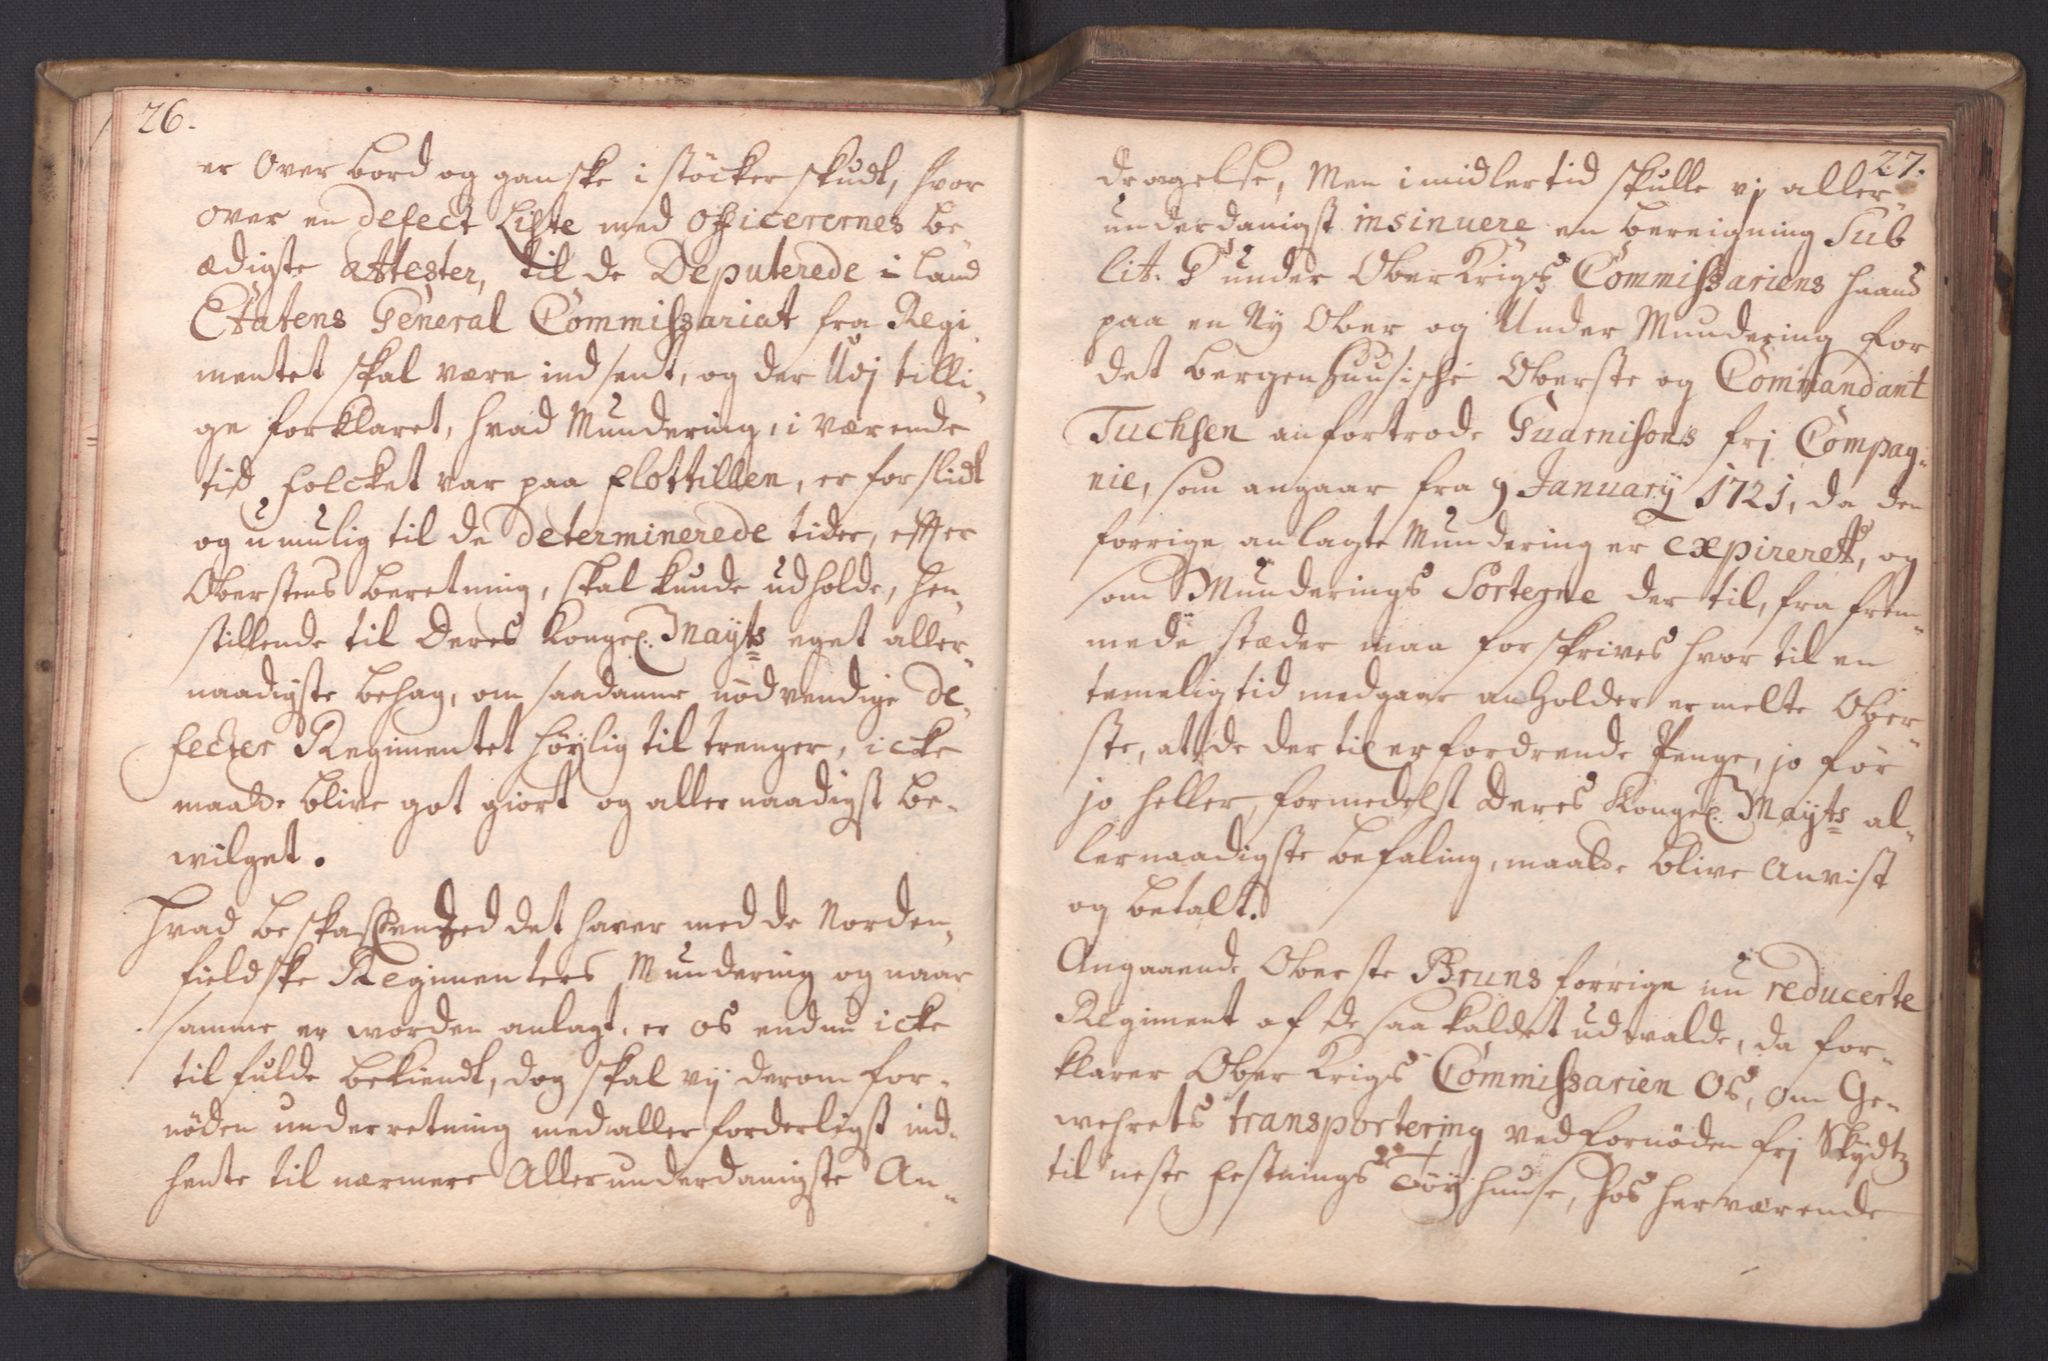 26.
er over bord og ganske i stöcker skudt, hvor
over en defect Liste med officerernes be
ædigste attester, til de Deputerede i Land
Etatens General Commissariat fra Regi
mentet skal være indsent, og der udj tilli,,
ge forklaret, hvad Mundering, i værende
tid folcket var paa flottillen, er forslidt
og umulig til de determinerede tider, efter
Oberstens beretning, skal kunde udholde, hen,,
stillende til Deres Kongel. Mayts eget aller,,
naadigste behag, om saadanne nödvendige de,,
fecter Regimentet höylig til trenger, icke
maatte blive got giort og allernaadigst be,,
wilget.
Hvad beskaffenhed det haver med de Norden,,
fieldske Regimenters Mundering og naar
samme er worden anlagt, er os endnu icke
til fulde bekiendt, dog skal vij derom for,,
nöden underretning med allerforderligst ind,,
hente til nærmere Allerunderdanigste An,,
27.
dragelse, Men imidlertid skulle vj aller,,
underdanigst insinuere en bereigning Sub
lit. G under Ober Krigs Commissariens haand
paa en Ny Ober og Under Mundering for
det bergenhuusische Oberste og Commandant
Tuchsen anfortrode Guarnisons frj Compag,,
nie, som angaar fra 9 January 1721, da den
forrige anlagte Mundering er expireret, og
som Munderings Sorterne der til, fra frem,,
mede stæder maa forskrives hvor til en
temelig tid medgaar anholder ermelte Ober,,
ste, at de der til erfordrende Penge, jo för
jo heller, formedelst Deres Kongel. Mayts al,,
lernaadigste befaling, maatte blive Anvist
og betalt.
Angaaende Oberste Bruns forrige nu reducerte
Regiment af de saa kaldet udvalde, da for,,
klarer Ober Krigs Commissarien Os, om Ge,,
wehrets transportering ved fornöden frj Skydtz
til neste festnings Töyhuuse, hos herværende